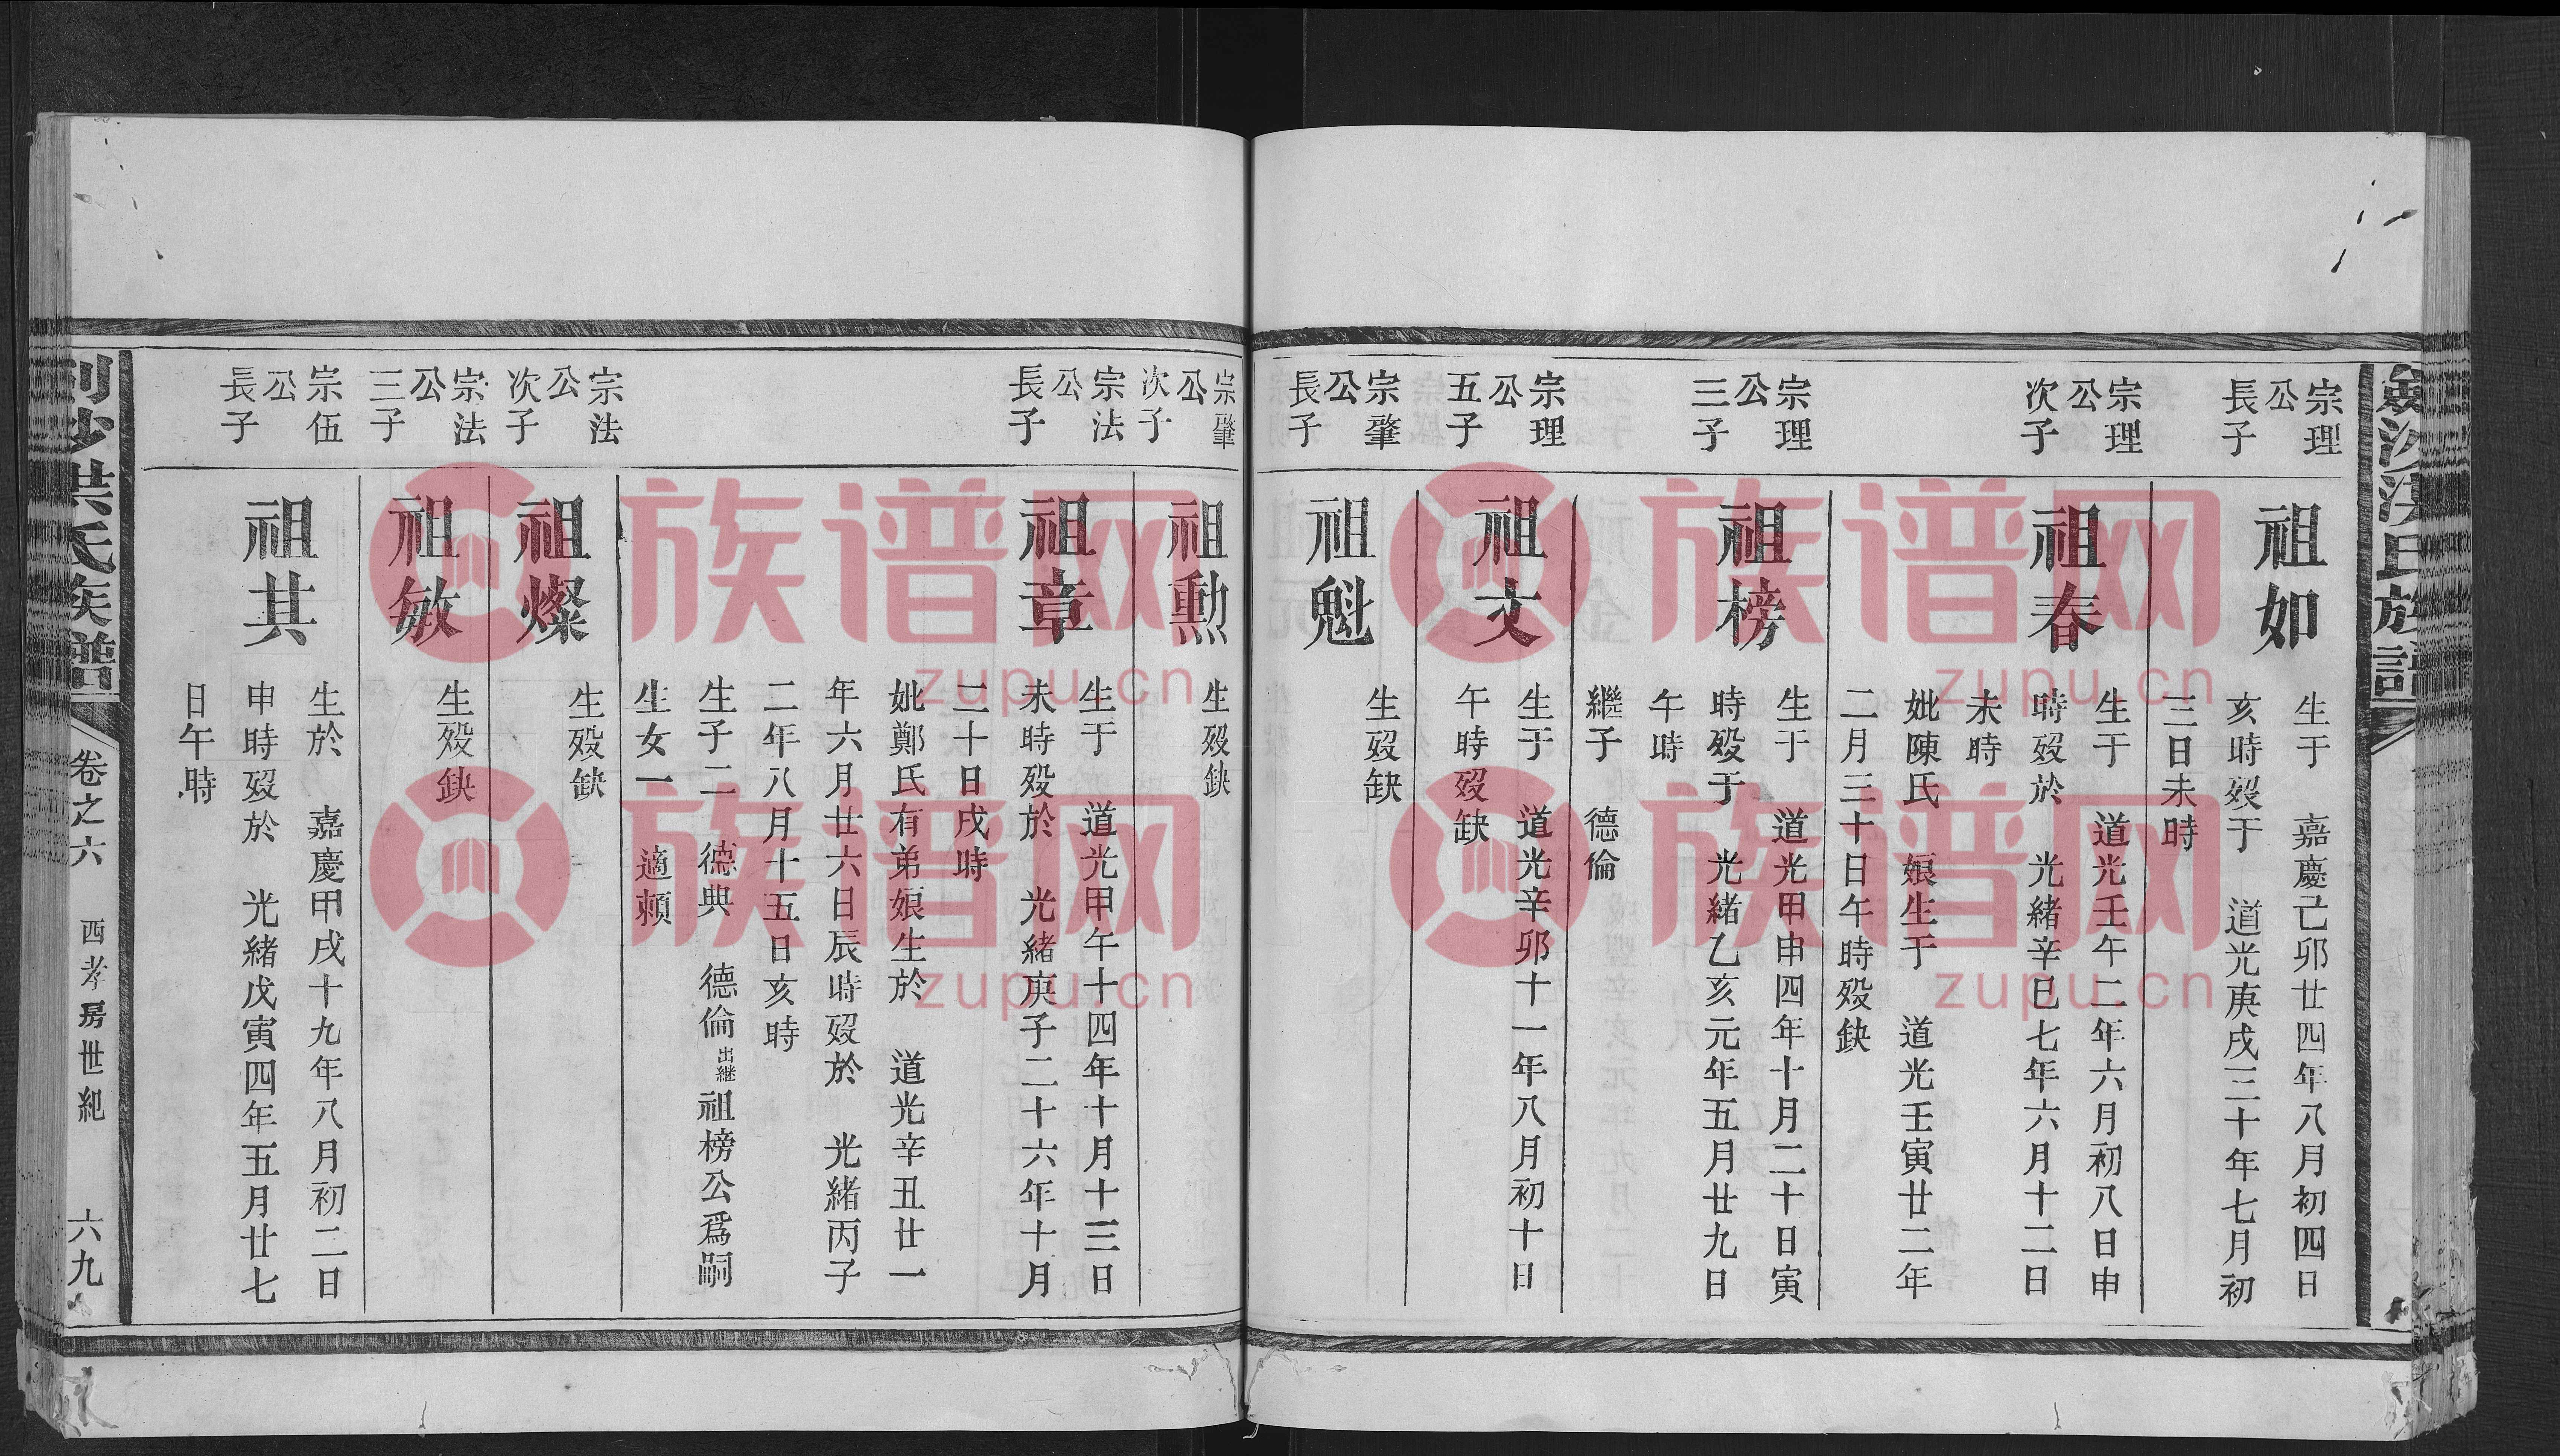 宗理
公
長子
祖如
生于　嘉慶己卯廿四年八月初四日
亥時殁于　道光庚戌三十年七月初
三日未時
宗理
公
次子
祖春
生于　道光壬午二年六月初八日申
時殁於　光緒辛巳七年六月十二日
未時
妣陳氏　娘生于　道光壬寅廿二年
二月三十日午時殁缺
宗理
公
三子
祖榜
生于　道光甲申四年十月二十日寅
時殁于　光緒乙亥元年五月廿九日
午時
繼子　德倫
宗理
公
五子
祖文
生于　道光辛卯十一年八月初十日
午時殁缺
宗肇
公
長子
祖魁
生殁缺
宗肇
公
次子
祖勳
生殁缺
宗法
公
長子
祖章
生于　道光甲午十四年十月十三日
未時殁於　光緒庚子二十六年十月
二十日戌時
妣鄭氏有弟娘生於　道光辛丑廿一
年六月廿六日辰時殁於　光緒丙子
二年八月十五日亥時
生子二　德典　德倫出继祖榜公爲嗣
生女一　適賴
宗法
公
次子
祖燦
生殁缺
宗法
公
三子
祖敏
生殁缺
宗伍
公
長子
祖其
生於　嘉慶甲戌十九年八月初二日
申時殁於　光緒戊寅四年五月廿七
日午時
沙洪氏族譜
卷之六
西孝房世紀
六九
族谱网
zupu.cn
族谱网
zupu.cn
族谱网
zupu.cn
族谱网
zupu.cn